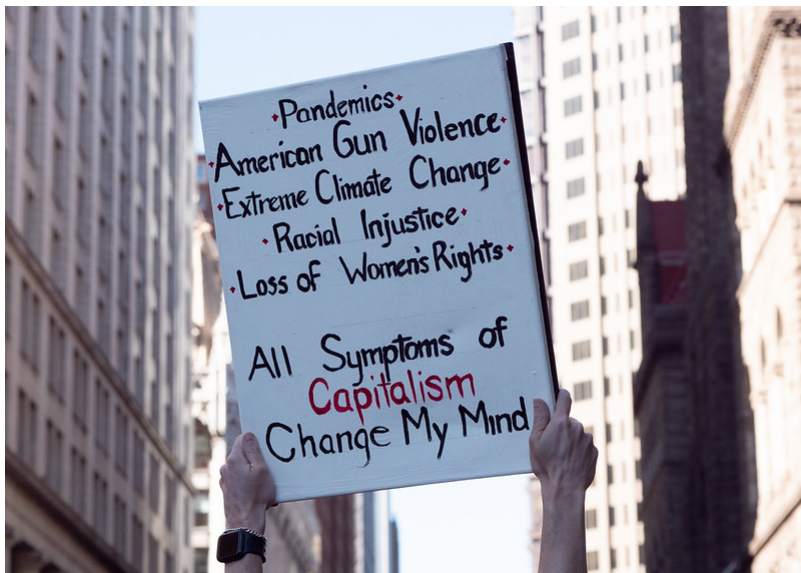 Pandemics
American Gun Violence
Extreme Climate Change
Racial Injustice
Loss of Women's Rights
All Symptoms of
Capitalism
Change My Mind